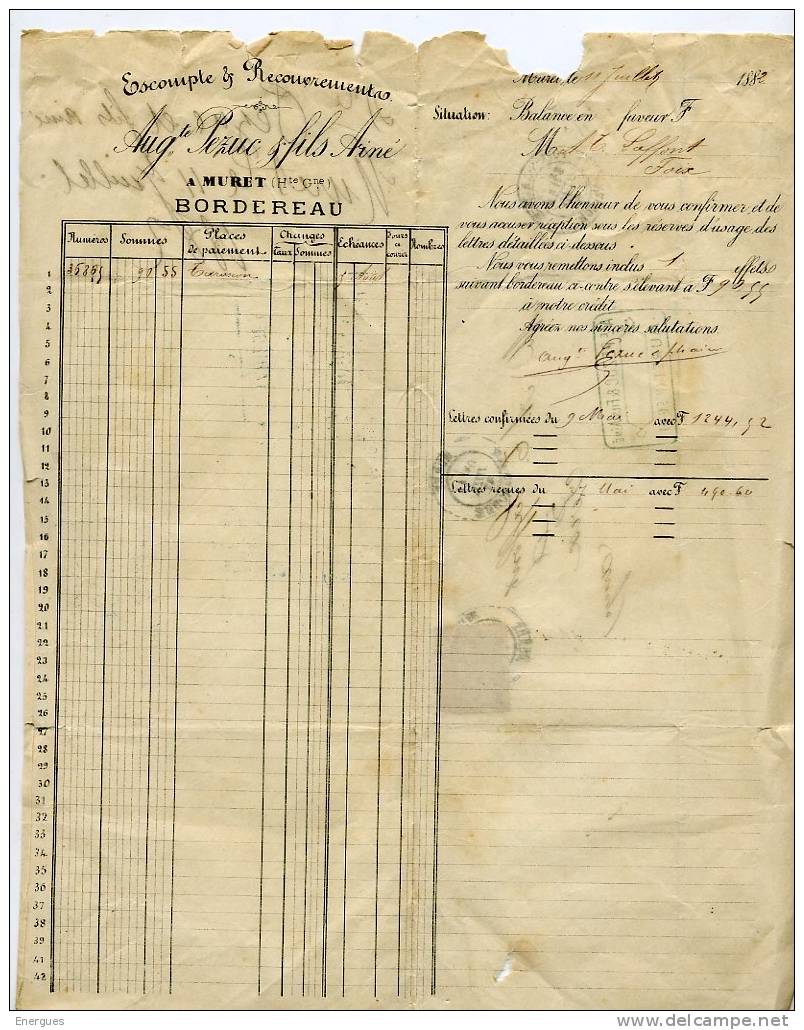 Escompte & Recouvrements.
Aug.te Pezuc & fils Ainé
A MURET (Hte Gne)
BORDEREAU
Numéros Sommes Places de paiement Changes Taux Sommes Échéances Jours à courir Nombres
1 91 55
2
3
4
5
6
7
8
9
10
11
12
13
14
15
16
17
18
19
20
21
22
23
24
25
26
27
28
29
30
31
32
33
34
35
36
37
38
39
40
41
42
Muret, le 11 Juillet 1882
Situation: Balance en faveur F
M A. T. Laffont
Foix
Nous avons l'honneur de vous confirmer et de
vous accuser réception sous les réserves d'usage, des
lettres détaillées ci-dessous.
Nous vous remettons inclus 1 effets
suivant bordereau ci-contre s'élevant à F 92 55
à notre crédit
Agréez nos sincères salutations
Aug.te Pezuc & fils ainé
Lettres confirmées du 9 Mai avec F 1244,52
Lettres reçues du 27 Mai avec F 492.60
Energues
www.delcampe.net